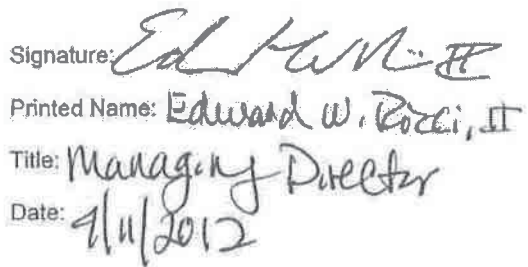 Signature:
Printed Name: Edward W. Ricci, II
Title: Managing Director
Date: 9/11/2012